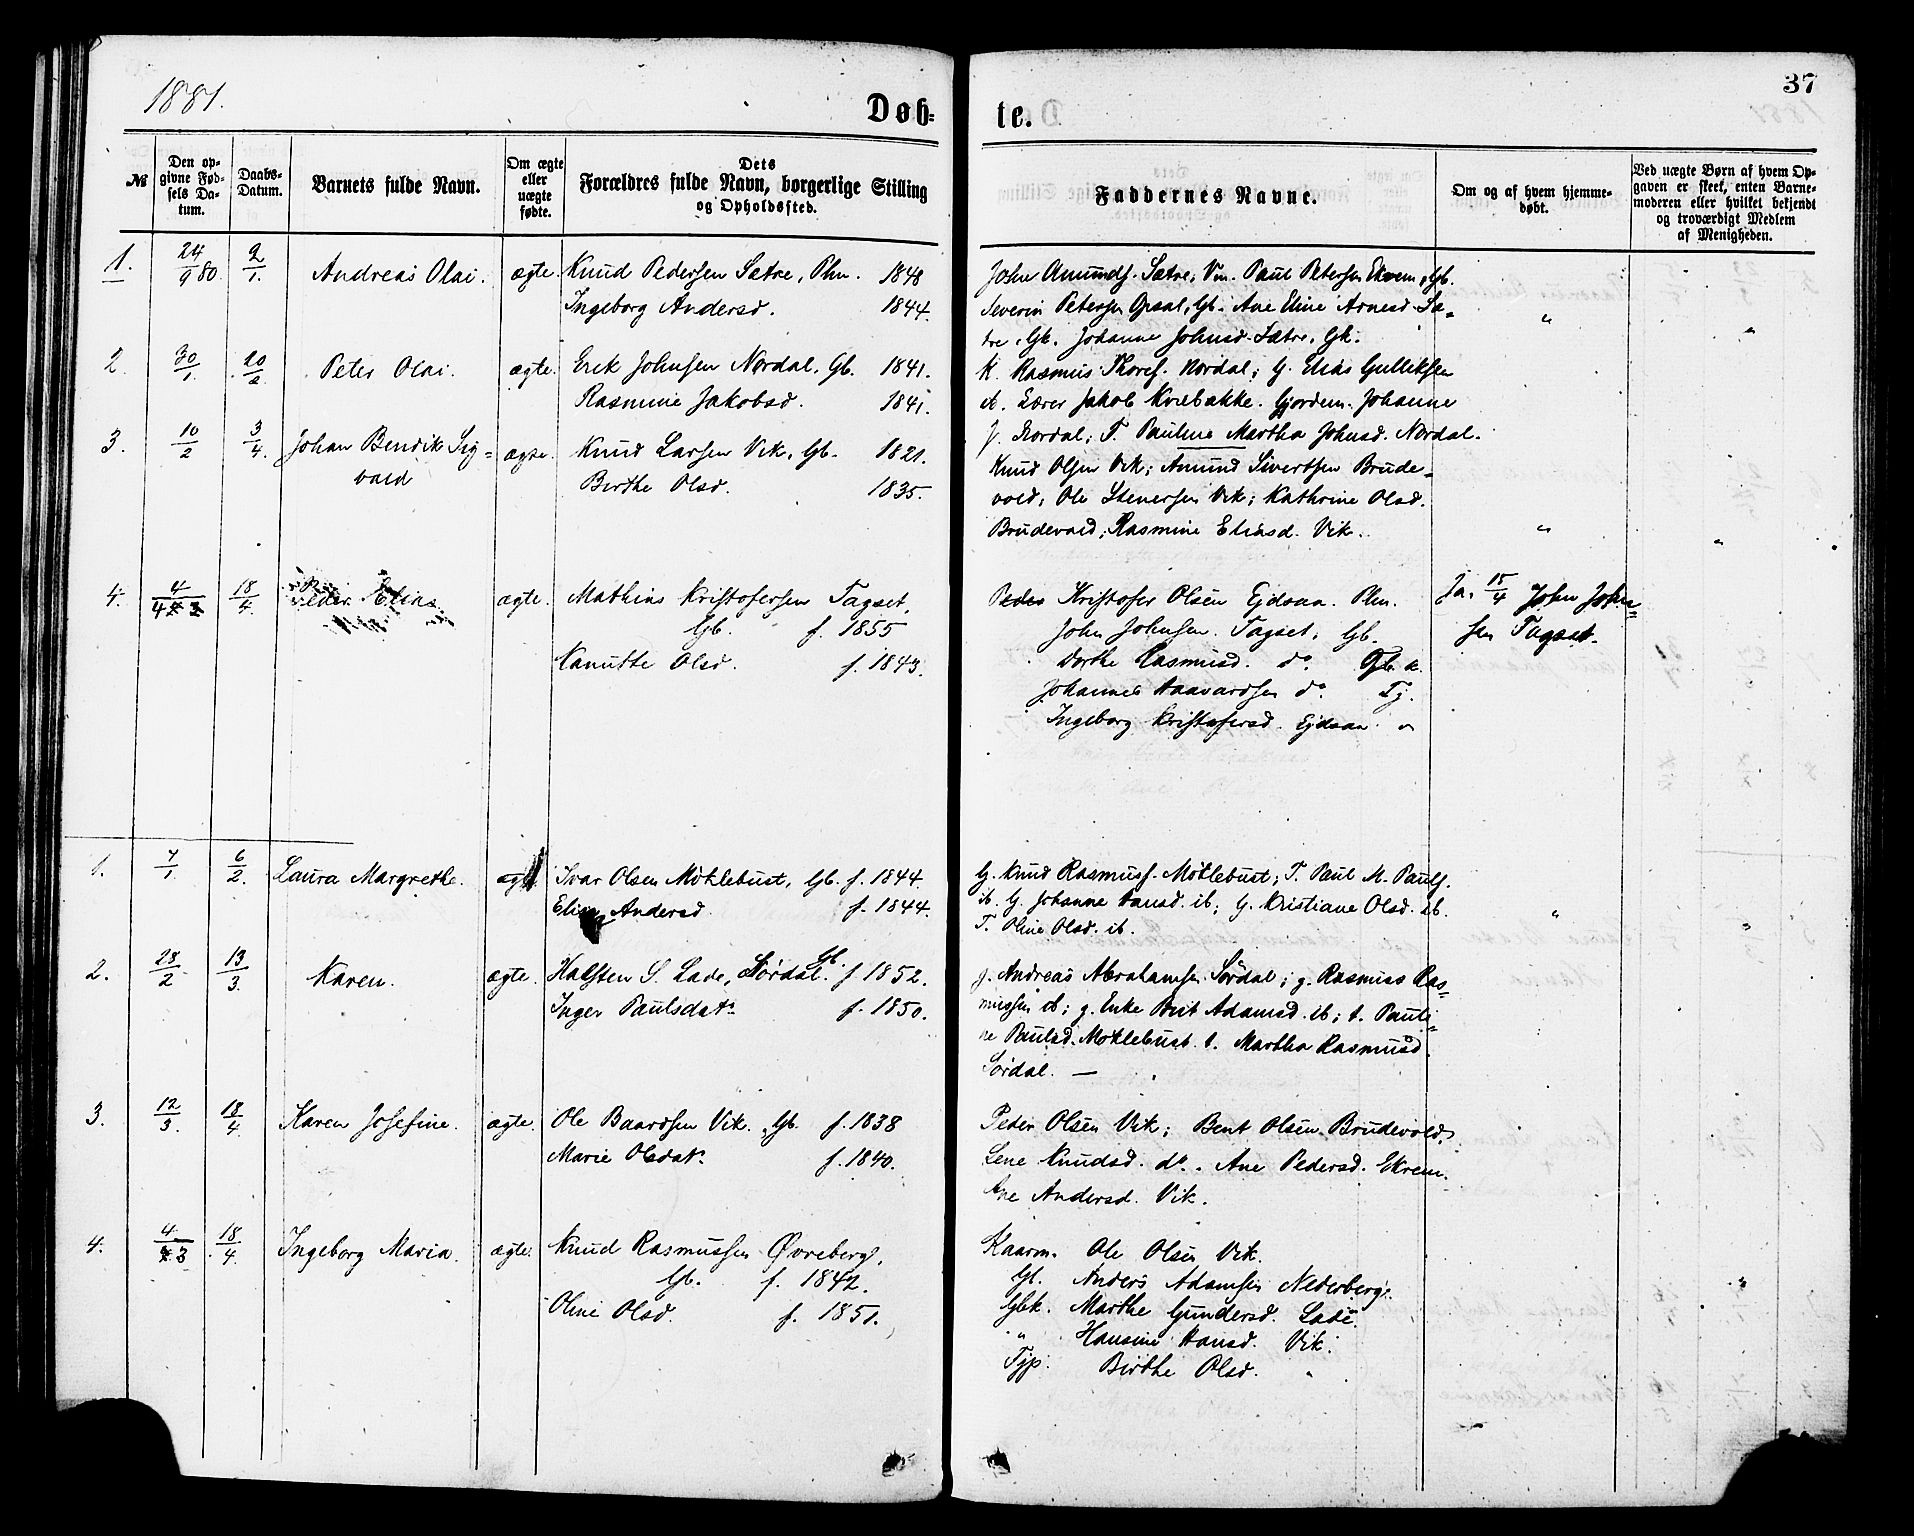 1881.
Døb-
te.
37
№
Den op-
givne Fød-
sels Da-
tum.
Daabs-
Datum.
Barnets fulde Navn.
Om ægte
eller
uægte
fødte.
Dets
Forældres fulde Navn, borgerlige Stilling
og Opholdssted.
Faddernes Navne.
Om og af hvem hjemme-
døbt.
Ved uægte Børn af hvem Op-
gaven er skeet, enten Barne-
moderen eller hvilket bekjendt
og troværdigt Medlem
af Menigheden.
1. 24/9 80. 2/1. Andreas Olai. ægte. Knud Pedersen Sætre, Plm. 1848
Ingeborg Andersd. 1844.
John Amunds. Sætre, Vm. Paul Petersen Ekrem, Gb.
Severin Petersen Opsal, Gb. Ane Eline Arnesd. Sæ-
tre, Gk. Johanne Johnsd. Sætre, Gk.
"
"
2. 30/1. 20/2. Peter Olai. ægte. Erik Johnsen Nordal, Gb. 1841.
Rasmine Jakobsd. 1841.
K. Rasmus Thores. Nordal; G. Elias Gulliksen
ib. Lærer Jakob Kvebække. Gjordem. Johanne
J. Nordal; T. Pauline Martha Johnsd. Nordal.
3. 10/2 3/4. Johan Bendik Sig-
vald
ægte. Knud Larsen Vik, Gb. 1821.
Berthe Olsd. 1835.
Knud Olsen Vik; Amund Sivertsen Brude-
vold; Ole Stenersen Vik; Kathrine Olsd.
Brudevold; Rasmine Eliasd. Vik.
"
"
4. 4/3 18/4. Peder Elias. ægte. Mathias Kristofersen Tagset,
Gb. f. 1855
Kanutte Olsd. f. 1843.
Kristofer Olsen Ejdsaa. Plm.
John Johnsen. Tagset, Gb.
Dorthe Rasmusd. do. Gb. k.
Johannes Haavardsen do. Tj.
Ingeborg Kristofersd. Ejdsaa. "
Ja. 15/4 John John-
sen Tagset.
1. 7/1. 6/2. Laura Margrethe. ægte Ivar Olsen Möklebust, Gb. f. 1844.
Andersd. f. 1844.
G. Knud Rasmuss. Möklebust; T. Paul M. Pauls.
ib. G. Johanne Hansd. ib; G. Kristiane Olsd. ib.
T. Oline Olsd. ib.
"
"
2. 28/2 13/3. Karen. ægte. Halsten S. Lade, Sørdal. Gb. f. 1852.
Inger Paulsdat. f. 1850.
g. Andreas Abrahamsen Sørdal; g. Rasmus Ras-
mussen ib; g. Enke Brit Adamsd. ib; t. Pauli-
ne Paulsd. Moklebust. t. Martha Rasmusd.
Sørdal. —
3. 12/3. 18/4 Karen Josefine. ægte. Ole Baardsen Vik. Gb. f. 1838
Marie Olsdat. f. 1840.
Peder Olsen Vik; Bent Olsen Brudevold.
Lene Knudsd. do. Ane Pedersd. Ekrem.
Ane Andersd. Vik.
4. 4/3 18/4. Ingeborg Maria. ægte. Knud Rasmussen Øvreberg,
Gb. f. 1842.
Oline Olsd. f. 1851.
Kaarm. Ole Olsen Vik.
Gb. Anders Adamsen Nederberg.
Gbk. Marthe Gundersd. Lade.
" Hansine Hansd. Vik.
Tjp. Birthe Olsd. "
"